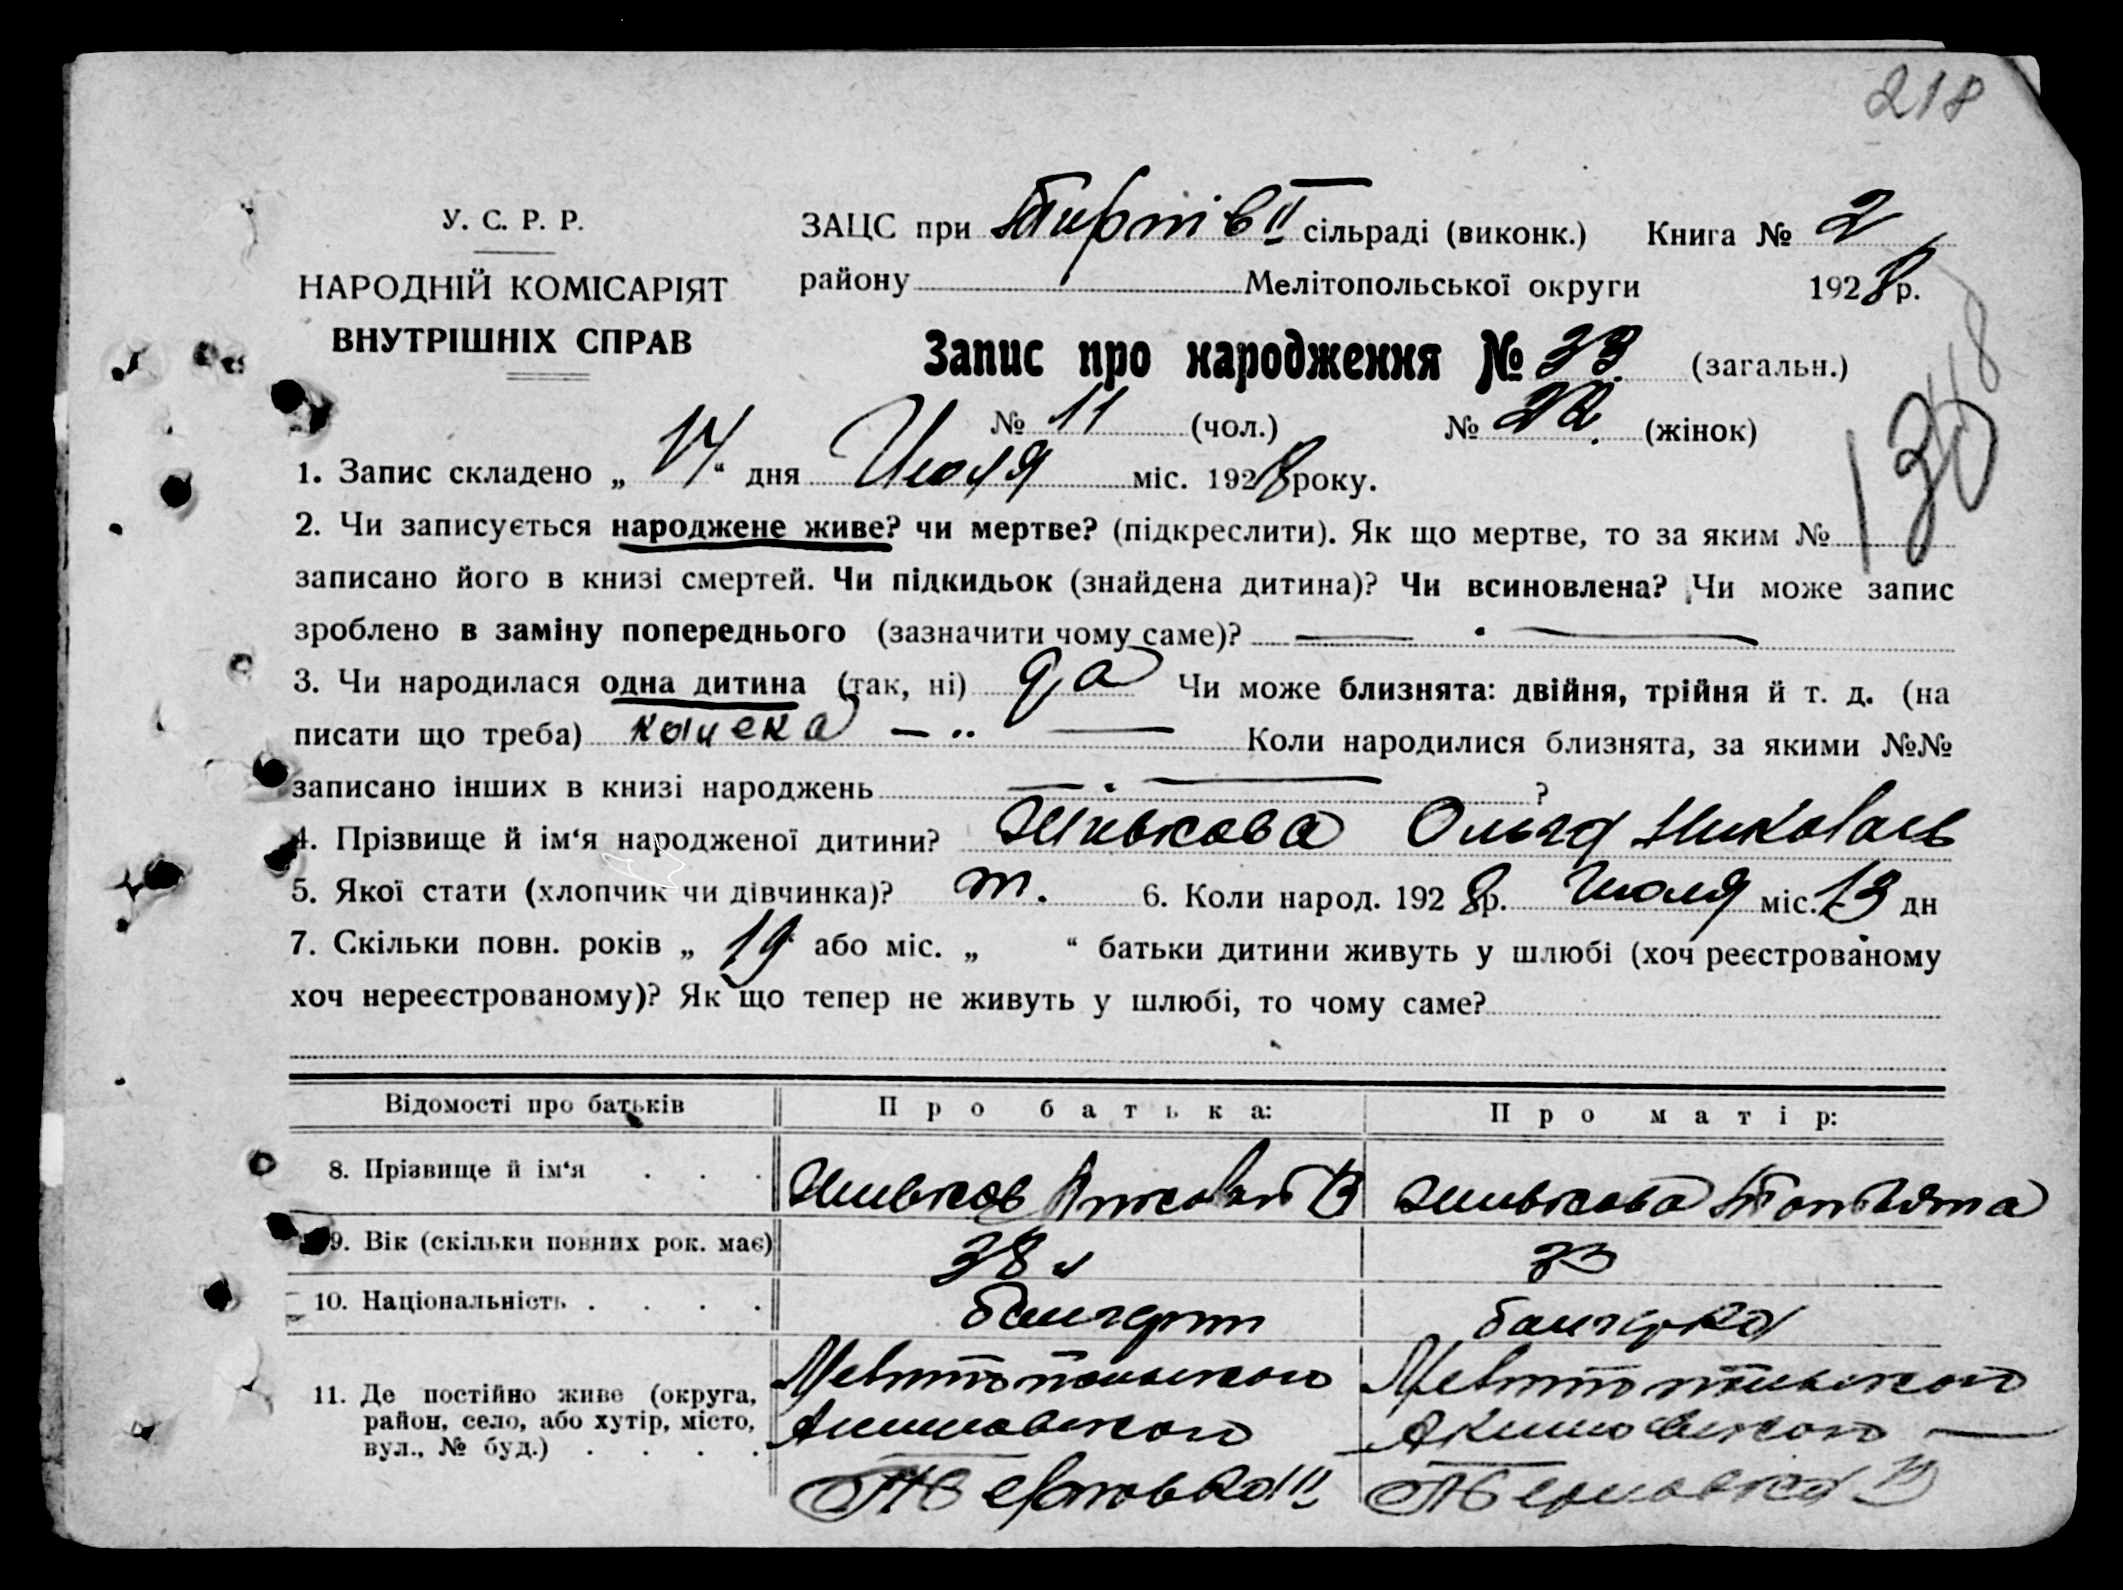 218
У. С. Р. Р.
НАРОДНІЙ КОМІСАРІЯТ
ВНУТРІШНІХ СПРАВ
ЗАЦС при II сільраді (виконк.) Книга № 2
району Мелітопольської округи 1928 р.
Запис про народження № 33 (загальн.)
№ 11 (чол.) № 22 (жінок)
130
1. Запис складено „ 14 “ дня Июля міс. 1928 року.
2. Чи записується народжене живе? чи мертве? (підкреслити). Як що мертве, то за яким №
записано його в книзі смертей. Чи підкидьок (знайдена дитина)? Чи всиновлена? Чи може запис
зроблено в заміну попереднього (зазначити чому саме)?
3. Чи народилася одна дитина (так, ні) да Чи може близнята: двійня, трійня й т. д. (на
писати що треба) Коли народилися близнята, за якими №№
записано інших в книзі народжень ?
4. Прізвище й ім‘я народженої дитини? Ольга
5. Якої стати (хлопчик чи дівчинка)? 6. Коли народ. 1928 р. Июля міс. 13 дн
7. Скільки повн. років „ 19 або міс. „ “ батьки дитини живуть у шлюбі (хоч реєстрованому
хоч нереєстрованому)? Як що тепер не живуть у шлюбі, то чому саме?
Відомості про батьків Про батька: Про матір:
8. Прізвище й ім‘я . . .
9. Вік (скільки повних рок. має) 38 л 33
10. Національність . . . . болгарин болгарка
11. Де постійно живе (округа,
район, село, або хутір, місто,
вул., № буд.) . . . .
Мелитопольского Мелитопольского
Акимовского Акимовского